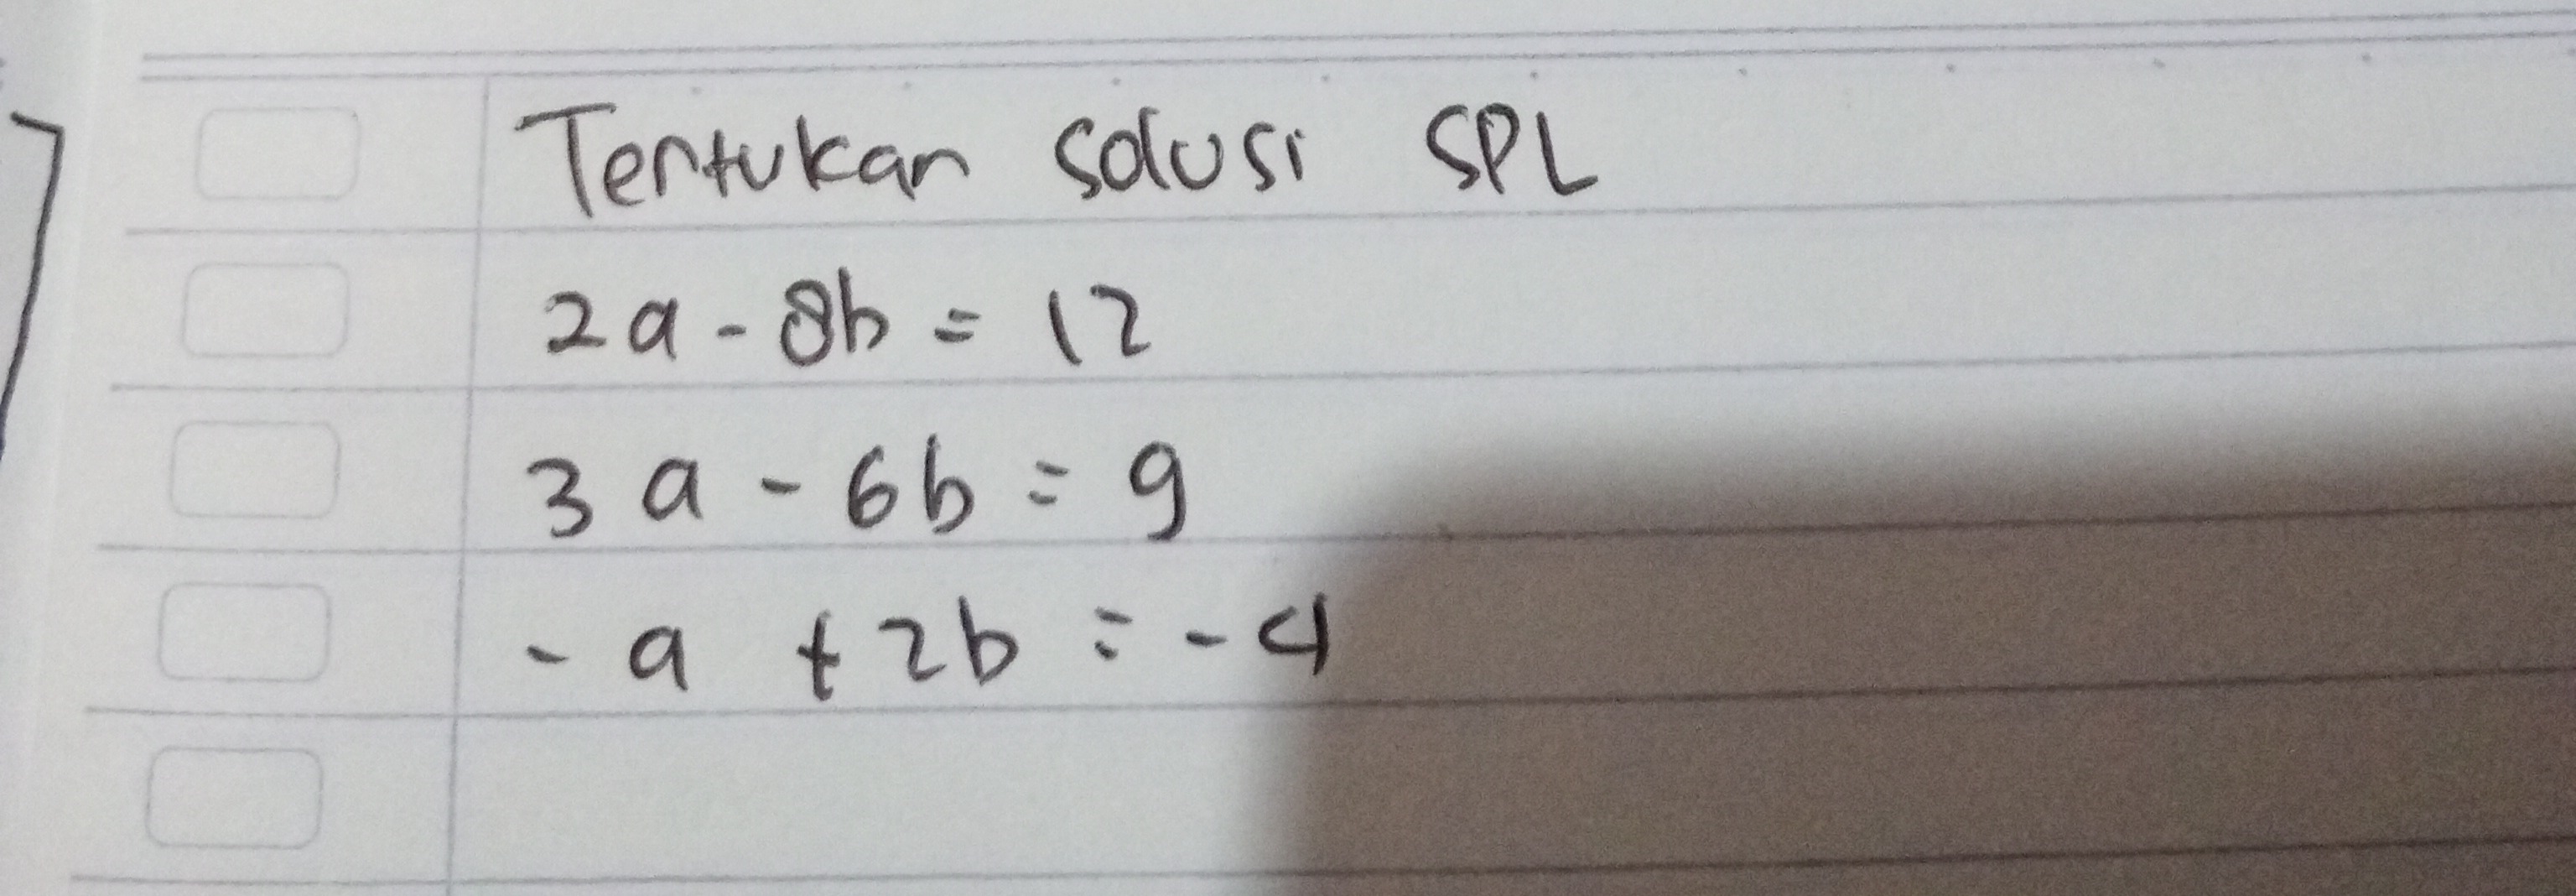 Tentukan solusi SPL
2a - 8b = 12
3a - 6b = 9
- a + 2b = -4